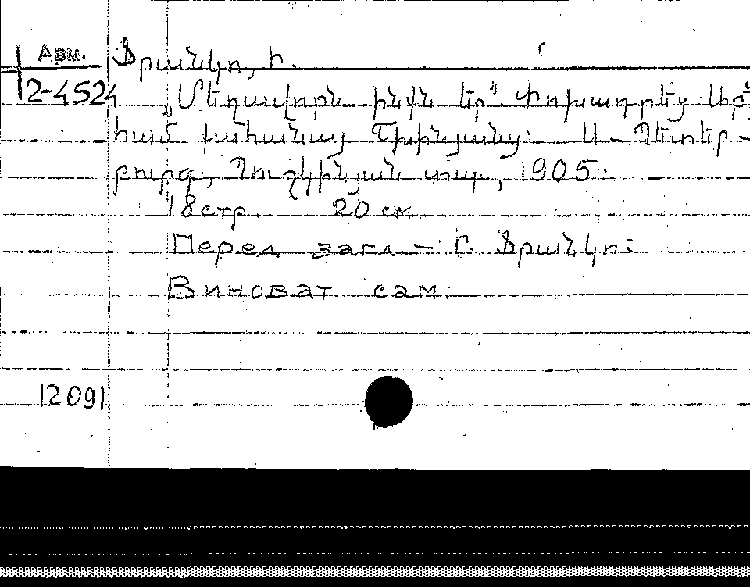 Арм.
2-4524
Ֆրանկո, Ի.
„Մեղավորն ինքն եր“ Փոխադրեց Աբր
համ քահանայ
Ս.-Պետեր-
բուրգ, Պուշկինյան տպ., 1905:
18 стр. 20 см.
Перед загл – Ի. Ֆրանկո:
Виноват сам.
12091